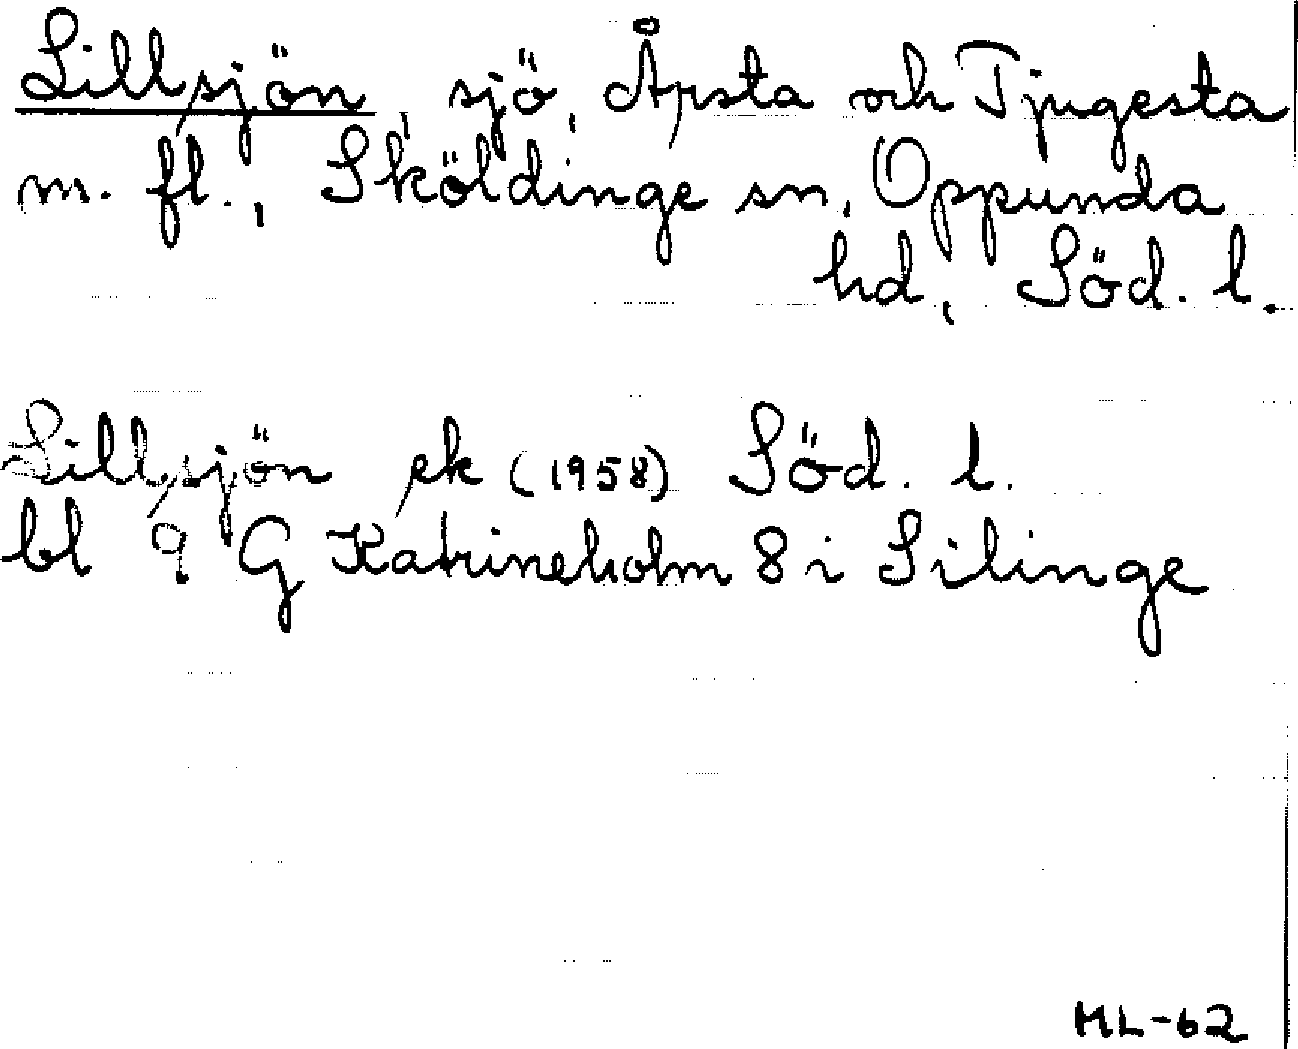 Lillsjön, sjö, Åpsta och Tjugesta
m. fl., Sköldinge sn, Oppunda
hd, Söd. l.
Lillsjön ek (1958) Söd. l.
bl 9 G Katrineholm 8 i Silinge
ML-62